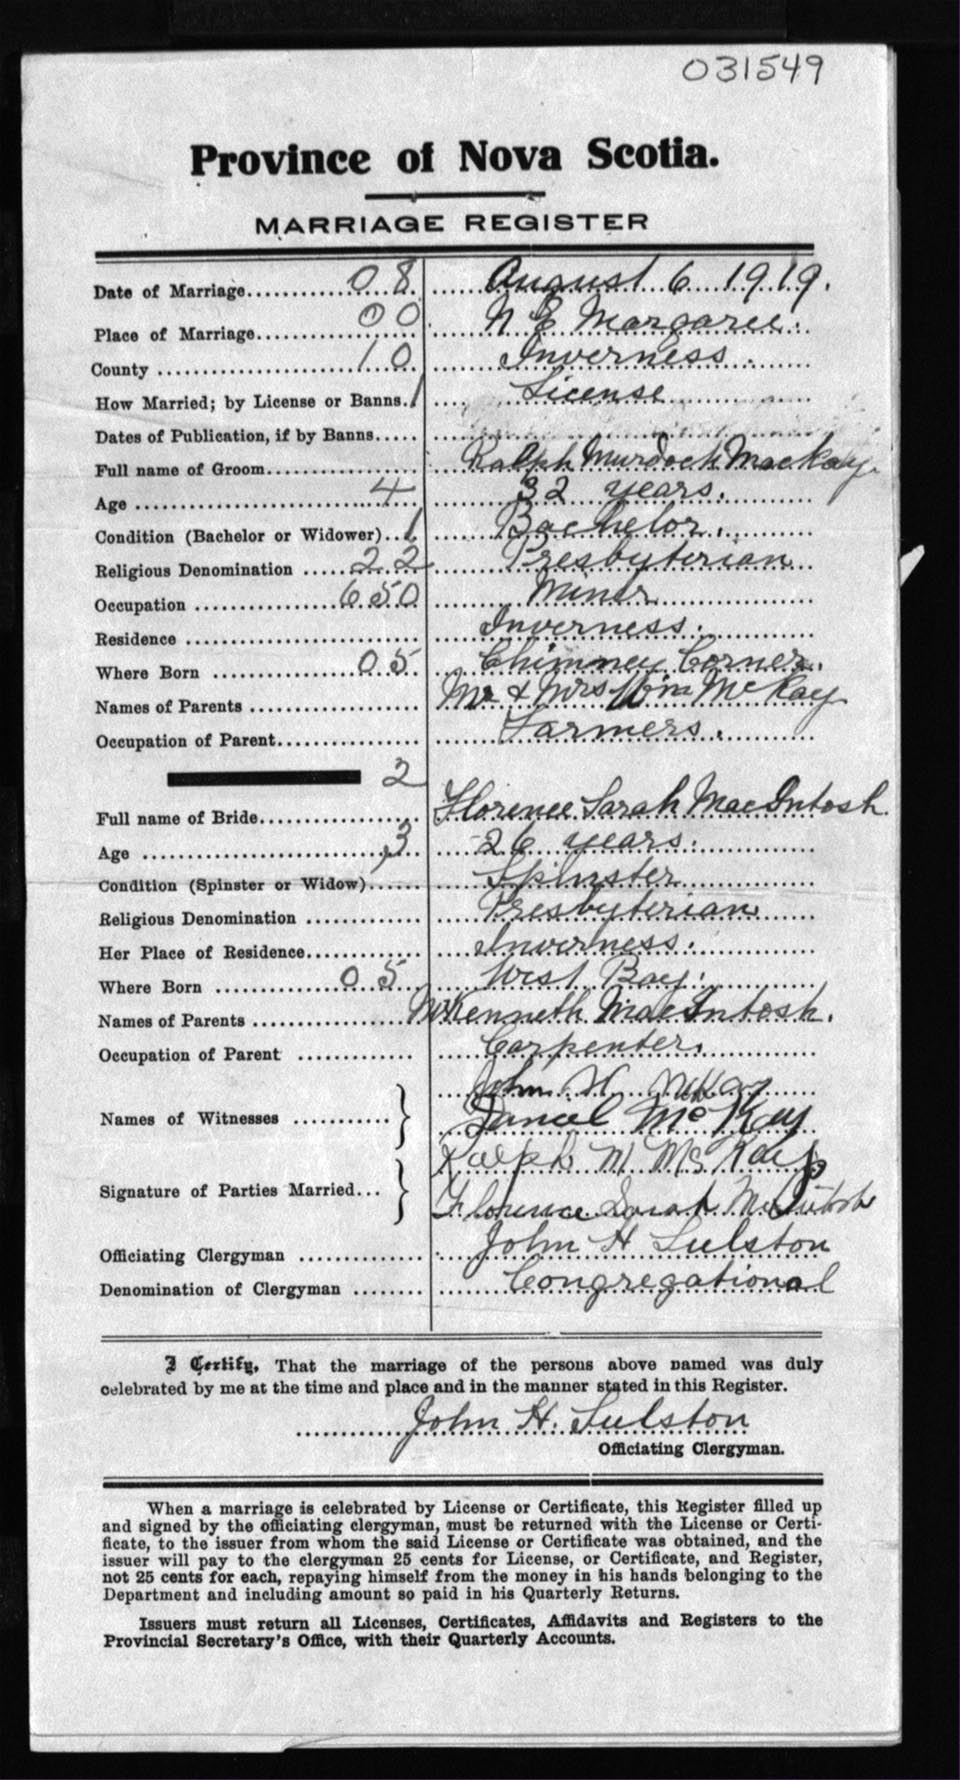 031549
Province of Nova Scotia.
MARRIAGE REGISTER
Date of Marriage 08 August 6 1919.
Place of Marriage 00 N E Margaree.
County 10 Inverness.
How Married; by License or Banns. 1 License
Dates of Publication, if by Banns
Full name of Groom Ralph Murdoch MacKay.
Age 4 32 years.
Condition (Bachelor or Widower) 1 Bachelor.
Religious Denomination 22 Presbyterian
Occupation 650 Miner
Residence Inverness.
Where Born 05 Chimney Corner.
Names of Parents Mr & Mrs Wm McKay
Occupation of Parent Farmers.
2
Full name of Bride Florence Sarah MacIntosh
Age 3 26 years.
Condition (Spinster or Widow) Spinster
Religious Denomination Presbyterian
Her Place of Residence Inverness.
Where Born 05 West Bay.
Names of Parents Kenneth MacIntosh.
Occupation of Parent Carpenter.
John H McKay
Names of Witnesses Daniel McKay
Ralph M McKay
Signature of Parties Married
Florence Sarah McIntosh
Officiating Clergyman John H Sulston
Denomination of Clergyman Congregational
I Certify, That the marriage of the persons above named was duly
celebrated by me at the time and place and in the manner stated in this Register.
John H. Sulston
Officiating Clergyman.
When a marriage is celebrated by License or Certificate, this Register filled up
and signed by the officiating clergyman, must be returned with the License or Certi-
ficate, to the issuer from whom the said License or Certificate was obtained, and the
issuer will pay to the clergyman 25 cents for License, or Certificate, and Register,
not 25 cents for each, repaying himself from the money in his hands belonging to the
Department and including amount so paid in his Quarterly Returns.
Issuers must return all Licenses, Certificates, Affidavits and Registers to the
Provincial Secretary's Office, with their Quarterly Accounts.